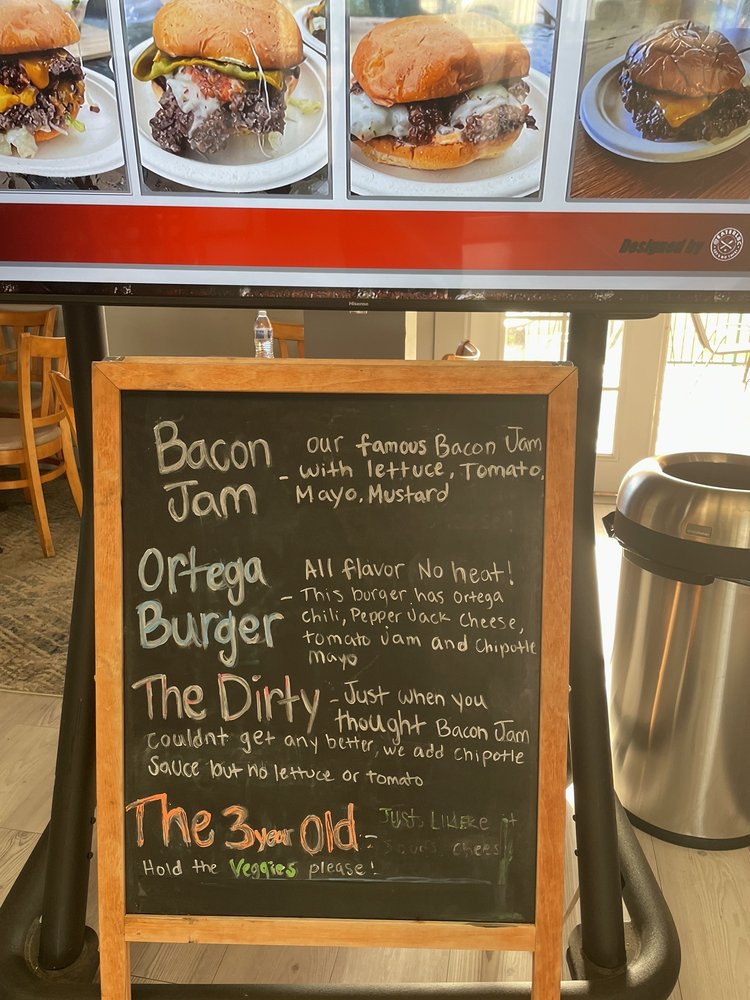 Designed by
Hisense
Bacon Jam - our famous Bacon Jam
with lettuce, Tomato,
Mayo, Mustard
Ortega Burger - All flavor No heat!
This burger has ortega
chili, Pepper Jack Cheese,
tomato jam and Chipotle
mayo
The Dirty - Just when you
thought Bacon Jam
couldnt get any better, we add chipotle
Sauce but no lettuce or tomato
The 3 year old - Just
Hold the Veggies please!